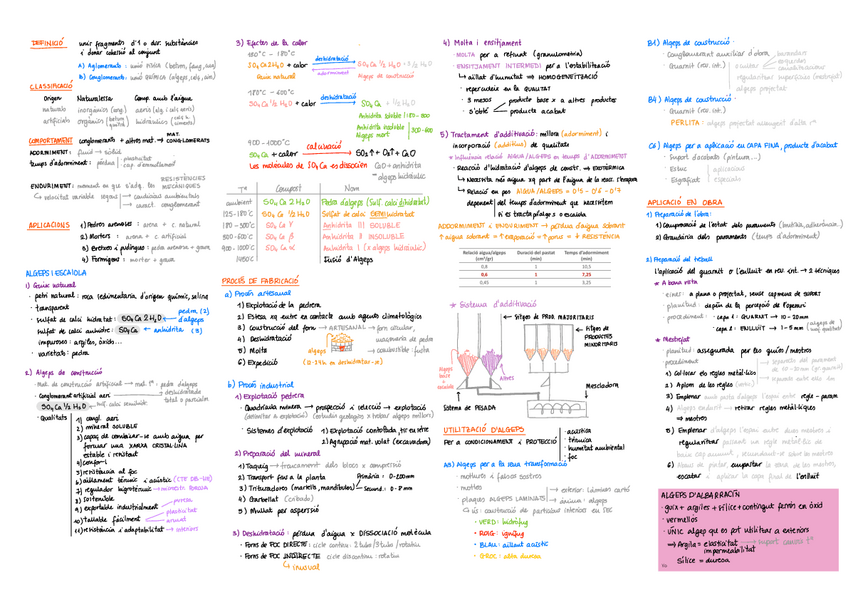 DEFINICIÓ unir fragments d'1 o dif. substàncies
i donar cohesió al conjunt
A) Aglomerants: unió física (betom, fang, aren)
B) Conglomerants: unió química (algeps, cels, aim)
CLASSIFICACIÓ
Origen Naturalesa Comp. amb l'aigua
naturals inorgànics (fang) aeris (alg i cels aeris)
artificials orgànics hidràulics
COMPORTAMENT conglomerants + altres mat. → MAT. CONGLOMERATS
ADORMIMENT: fluid → sòlid
temps d'adorminent: pèrdua plasticitat
cap. d'emmotllament
ENDURIMENT: moment en que s'adq. les RESISTÈNCIES MECÀNIQUES
velocitat variable segons condicions ambientals
caract. conglomerant
APLICACIONS 1) Pedres arenoses: arena + c natural
2) Morters: arena + c artificial
3) Bretxes i pudingues: pedra arenosa + grava
4) Formigons: morter + grava
ALGEPS I ESCAIOLA
1) Guix natural
petri natural: roca sedimentaria, d'origen químic, salina
transparent
sulfat de calci hidratat: SO4 Ca 2H2O → pedra (2) d'algeps
sulfat de calci anhidre: SO4 Ca ← anhidrita (3)
impuresos: argiles, òxids...
varietats: pedra
2) Algeps de construcció
Mat. de construcció artificial → mat. 1ª: pedra d'algeps
Conglomerant artificial aeri → deshidratada total o parcialm.
SO4 Ca ½ H2O
Qualitats 1) congl. aeri
2) mineral SOLUBLE
3) capaç de combinar-se amb aigua per
formar una XARXA CRISTAL·LINA
estable i resistent
4) confort
5) resistència al foc
6) aïllament tèrmic i acústic (CTE DB-HR)
7) regulador higrotèrmic
8) sostenible
9) exportable industrialment
10) tallable fàcilment
11) resistència i adaptabilitat → interiors
3) Efectes de la calor
130°C - 180°C
SO4 Ca 2H2O + calor deshidratació SO4 Ca ½ H2O + 3/2 H2O
adormiment
Guix natural Algeps de construcció
180°C - 605°C
SO4 Ca ½ H2O + calor deshidratació SO4 Ca + ½ H2O
Anhidrita soluble 180-300
Anhidrita insoluble 300-600
Algeps mort
900-1000°C
SO4 Ca + calor calcinació SO3↑ + O2↑ + CaO
Les molècules de SO4 Ca es dissocien CaO + anhidrita
= algeps hidràulic
Tª Compost Nom
ambient SO4 Ca 2H2O Pedra d'algeps (Sulf. calci dihidratat)
125-180°C SO4 Ca ½ H2O Sulfat de calci SEMIhidratat
180-300°C SO4 Ca γ Anhidrita III SOLUBLE
300-600°C SO4 Ca β Anhidrita II INSOLUBLE
900-1000°C SO4 Ca α Anhidrita I (≈ algeps hidràulic)
1450°C Fusió d'Algeps
PROCÉS DE FABRICACIÓ
a) Procés artesanal
1) Explotació de la pedrera
2) Estesa xq entre en contacte amb agents climatològics
3) Construcció del forn → ARTESANAL → forn cel·lular,
4) Deshidratació muntanya de pedra
5) Molta algeps → combustible: fusta
6) Expedició (12-24h en deshidratar-se)
b) Procés industrial
1) Explotació pedrera
Quadrícula minera → prospecció i selecció → explotació
(delimitar a explotació) (estudis geològics x trobar algeps millors)
Sistemes d'explotació 1) Explotació controlada, tir entre
2) Agrupació mat. volat (excavadora)
2) Preparació del mineral
1) Taqueig → trencament dels blocs x compressió
2) Transport fins a la planta
3) Trituradores (martells, mandíbules) Primària: 0-200mm
Secund.: 0-8mm
4) Garbellat (cribado)
5) Mullat per aspersió
3) Deshidratació: pèrdua d'aigua x DISSOCIACIÓ molècula
Forns de FOC DIRECTE: cicle continu: 2 tubs/3 tubs/rotatiu
Forns de FOC INDIRECTE cicle discontinu: rotatiu
inusual
4) Molta i ensitjament
MOLTA per a refinat (granulometria)
ENSITJAMENT INTERMEDI per a l'estabilització
aïllat d'humitat ⇒ HOMOGENEÏTZACIÓ
repercuteix en la QUALITAT
3 mesos producte base x a altres productes
S'obté producte acabat
5) Tractament d'additivació: millora (adorminent) i
incorporació (additius) de qualitats
* Influència relació AIGUA/ALGEPS en temps d'ADORMIMENT
Reacció d'hidratació d'algeps de constr. ⇒ EXOTÈRMICA
Necessita més aigua xq part de l'aigua de la reac. s'evapora
Relació en pes AIGUA/ALGEPS = 0'5 - 0'6 - 0'7
depenent del temps d'adormiment que necessitem
i si es tracta d'algeps o escaiola
ADORMIMENT I ENDURIMENT → pèrdua d'aigua sobrant
↑ aigua sobrant = ↑ evaporació = ↑ porus = ↓ RESISTÈNCIA
Relació aigua/algeps (cm³/gr) Duració del pastat (min) Temps d'adormiment (min)
0,8 1 10,5
0,6 1 7,25
0,45 1 3,25
* Sistema d'additivació
← Sitges de PROD. MAJORITARIS
← Sitges de PRODUCTES MINORITARIS
Algeps base + soluble
Altres
Mescladora
Sistema de PESADA
UTILITZACIÓ D'ALGEPS
Per a CONDICIONAMENT i PROTECCIÓ acústica
tèrmica
humitat ambiental
foc
A3) Algeps per a la seua transformació
motlures i falsos sostres
motles
plaques ALGEPS LAMINATS exterior: Làmines cartó
ànima: algeps
ús: construcció de particions interiors en SEC
VERD: hidròfug
ROIG: ignífug
BLAU: aïllant acústic
GROC: alta duresa
B1) Algeps de construcció
Conglomerant auxiliar d'obra
Guarnit (rev. int.)
regularitzar superfícies (mestrejat)
algeps projectat
B4) Algeps de construcció
Guarnit (rev. int.)
PERLITA: algeps projectat alleugerit d'alta Tª
C6) Algeps per a aplicació en CAPA FINA, producte d'acabat
Suport d'acabats (pintura...)
Estuc aplicacions
Esgrafiat especials
APLICACIÓ EN OBRA
1) Preparació de l'obra:
1) Comprovació de l'estat dels paraments
2) Granulària dels paraments (temps d'adorminent)
2) Preparació del treball
L'aplicació del guarnit o l'enlluït en rev. int → 2 tècniques
* A bona vista
eines: a plana o projectat, sense cap mena de suport
planitud: depén de la percepció de l'operari
procediment capa 1: GUARNIT → 10-20mm
capa 2: ENLLUÏT → 1-5mm
* Mestrejat
planitud: assegurada per les guies/mestres
procediment
1) Col·locar els regles metàl·lics
2) Aplom de les regles
3) Emplenar amb pasta d'algeps l'espai entre regle-param
4) Algeps endurit → retirar regles metàl·liques
⇒ mestres
5) Emplenar d'algeps l'espai entre dues mestres i
regularitzar passant un regle metàl·lic de
baix cap amunt, recolzant-se sobre les mestres
6) Abans de pintar, empastar la zona de les mestres,
escatar i aplicar la capa final de l'enlluït
ALGEPS D'ALBARRACÍN
guix + argiles + sílice + contingut ferrós en òxid
vermellós
ÚNIC algep que es pot utilitzar a exteriors
⇒ Argila = elasticitat → suport canvis tª
impermeabilitat
Sílice = duresa